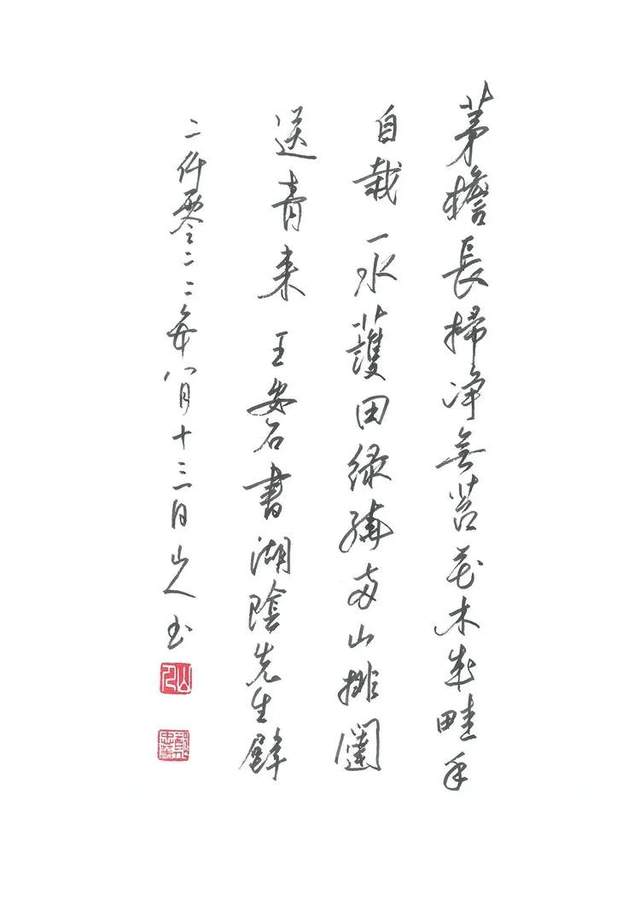 茅檐長掃净無苔花木成畦手
自栽一水護田緑繞两山排闥
送青来 王安石書湖陰先生壁
二仟零二二年八月十三日山人书
山人